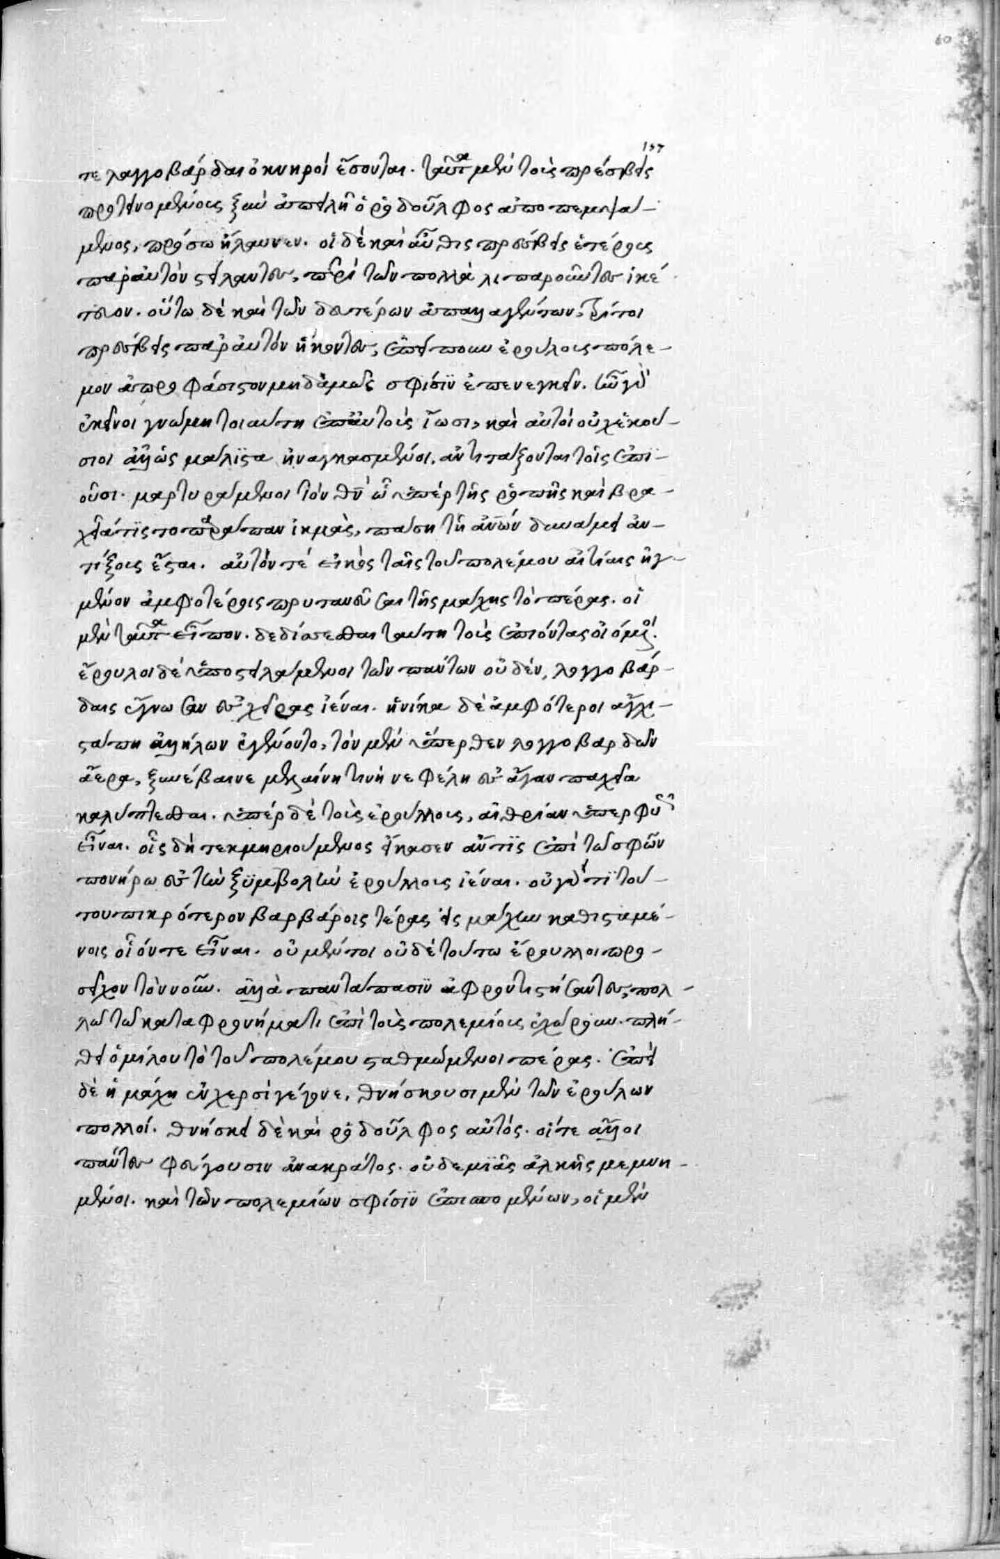 60
137
τε λαγγοβάρδαι ὀκνηροὶ ἔσονται. ταῦτα μὲν τοὺς πρέσβεις
προτεινομένους ξὺν ἀπειλῇ ὁ ῥοδοῦλφος ἀποπεμψά-
μενος, πρόσω ἤλαυνεν. οἱ δὲ καὶ αὖθις πρέσβεις ἑτέρους
παρ' αὐτὸν στείλαντες, περὶ τῶν πολλὰ λιπαροῦντες ἱκέ-
τευον. οὕτω δὲ καὶ τῶν δευτέρων ἀπαλλαγέντων, τρίτοι
πρέσβεις παρ' αὐτὸν ἥκοντες, ἐρούλους πόλε-
μον ἀπροφάσιστον μηδαμῶς σφίσιν ἐπενεγκεῖν. ἢν γὰρ
ἐκεῖνοι γνώμῃ τοιαύτῃ ἐπ' αὐτοὺς ἴωσι, καὶ αὐτοὶ οὐχ ἑκού-
σιοι ἀλλ' ὡς μάλιστα ἠναγκασμένοι, ἀντιτάξονται τοῖς ἐπι-
οῦσι. μαρτυράμενοι τὸν θν, οὗπερ τῆς ῥοπῆς καὶ βρα-
χεῖά τις τοπαράπαν ἰκμὰς, πάσῃ τῇ ἀνων δυνάμει ἀν-
τίξους ἔσται. αὐτόν τε εἰκὸς ταῖς τοῦ πολέμου αἰτίαις ἠγ-
μένον ἀμφοτέροις πρυτανεῦσαι τῆς μάχης τὸ πέρας. οἱ
μὲν ταῦτα εἶπον. δεδίσσεσθαι ταύτῃ τοὺς ἐπιόντας οἰόμενοι.
ἔρουλοι δὲ ὑποστειλάμενοι τῶν πάντων οὐδέν, λαγγοβάρ-
δαις ἔγνωσαν ἐς χεῖρας ἰέναι. ἡνίκα δὲ ἀμφότεροι ἄγχι-
στά πη ἀλλήλων ἐγένοντο, τὸν μὲν ὕπερθεν λαγγοβαρδῶν
ἀέρα, ξυνέβαινε μελαίνῃ τινὶ νεφέλῃ ἐς ἄγαν παχείᾳ
καλύπτεσθαι. ὑπὲρ δὲ τοὺς ἐρούλλους, αἰθρίαν ὑπερφυῶς
εἶναι. οἷς δὴ τεκμηριούμενος εἴκασεν ἄν τις ἐπὶ τῷ σφῶν
πονηρῷ ἐς τὴν ξυμβολὴν ἐρούλλους ἰέναι. οὐ γάρ τι τού-
του πικρότερον βαρβάροις τέρας εἰς μάχην καθισταμέ-
νοις οἷόν τε εἶναι. οὐ μέντοι οὐδὲ τούτῳ ἔρουλλοι προσ-
εῖχον τὸν νοῦν. ἀλλὰ παντάπασιν ἀφροντιστήσαντες, πολ-
λῷ τῷ καταφρονήματι ἐπὶ τοὺς πολεμίους ἐχώρουν. πλή-
θει ὁμίλου τὸ τοῦ πολέμου σταθμώμενοι πέρας. ἐπεὶ
δὲ ἡ μάχη ἐν χερσὶ γέγονε, θνήσκουσι μὲν τῶν ἐρούλων
πολλοί. θνήσκει δὲ καὶ ῥοδοῦλφος αὐτός. οἵ τε ἄλλοι
πάντες φεύγουσιν ἀνακράτος. οὐδεμιᾶς ἀλκῆς μεμνη-
μένοι. καὶ τῶν πολεμίων σφίσιν ἐπισπομένων, οἱ μὲν